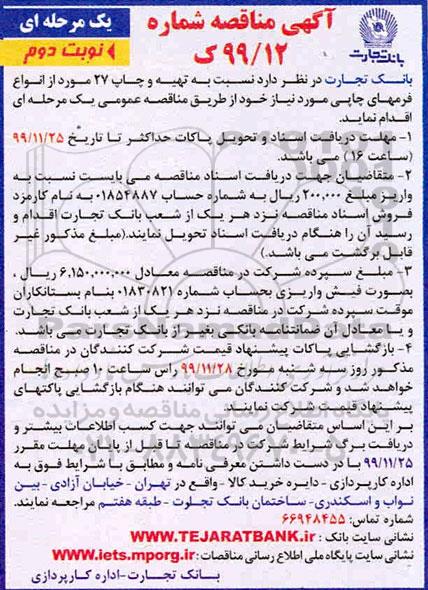 آگهی مناقصه شماره
۹۹/۱۲ ک
یک مرحله ای
نوبت دوم
بانک تجارت
بانک تجارت در نظر دارد نسبت به تهیه و چاپ ۲۷ مورد از انواع
فرمهای چاپی مورد نیاز خود از طریق مناقصه عمومی یک مرحله ای
اقدام نماید.
۱- مهلت دریافت اسناد و تحویل پاکات حداکثر تا تاریخ ۹۹/۱۱/۲۵
(ساعت ۱۶) می باشد.
۲- متقاضیان جهت دریافت اسناد مناقصه می بایست نسبت به
واریز مبلغ ۲۰۰,۰۰۰ ریال به شماره حساب ۰۱۸۵۴۸۸۷ به نام کارمزد
فروش اسناد مناقصه نزد هر یک از شعب بانک تجارت اقدام و
رسید آن را هنگام دریافت اسناد تحویل نمایند.(مبلغ مذکور غیر
قابل برگشت می باشد.)
۳- مبلغ سپرده شرکت در مناقصه معادل ۶,۱۵۰,۰۰۰,۰۰۰ ریال ،
بصورت فیش واریزی بحساب شماره ۰۱۸۳۰۸۲۱ بنام بستانکاران
موقت سپرده شرکت در مناقصه نزد هر یک از شعب بانک تجارت
و یا معادل آن ضمانتنامه بانکی بغیر از بانک تجارت می باشد.
۴- بازگشایی پاکات پیشنهاد قیمت شرکت کنندگان در مناقصه
مذکور روز سه شنبه مورخ ۹۹/۱۱/۲۸ راس ساعت ۱۰ صبح انجام
خواهد شد و شرکت کنندگان می توانند هنگام بازگشایی پاکتهای
پیشنهاد قیمت شرکت نمایند.
بر این اساس متقاضیان می توانند جهت کسب اطلاعات بیشتر و
دریافت برگ شرایط شرکت در مناقصه تا قبل از پایان مهلت مقرر
۹۹/۱۱/۲۵ با در دست داشتن معرفی نامه و مطابق با شرایط فوق به
اداره کارپردازی - دایره خرید کالا - واقع در تهران - خیابان آزادی - بین
نواب و اسکندری- ساختمان بانک تجارت - طبقه هفتم مراجعه نمایند.
شماره تماس: ۶۶۹۴۸۴۵۵
نشانی سایت بانک : WWW.TEJARATBANK.ir
نشانی سایت پایگاه ملی اطلاع رسانی مناقصات : WWW.iets.mporg.ir
بانک تجارت-اداره کارپردازی